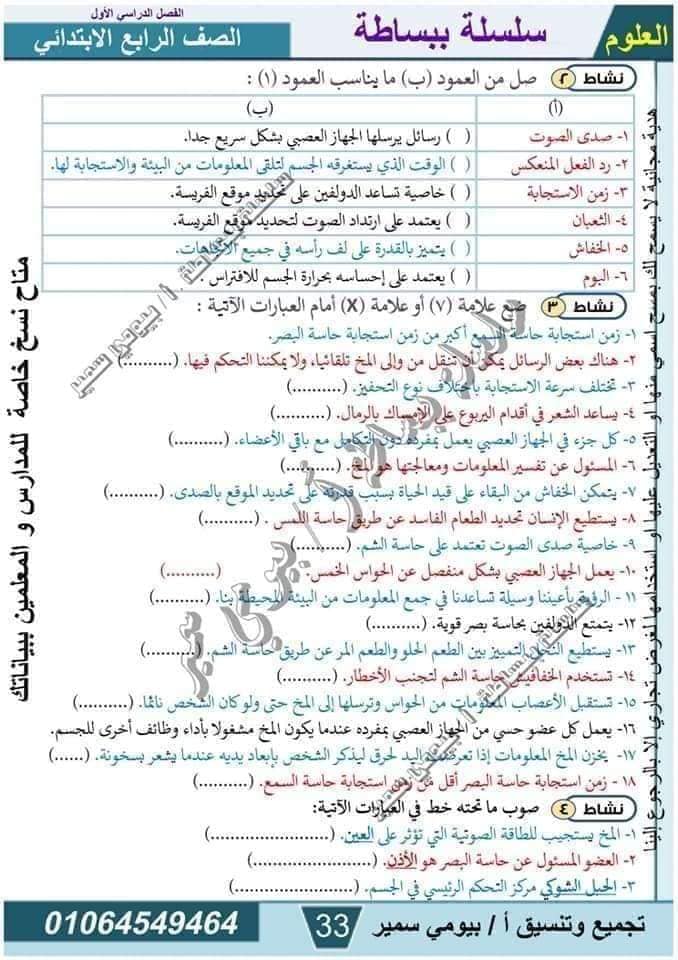 العلوم
سلسلة ببساطة
الفصل الدراسي الأول
الصف الرابع الابتدائي
نشاط ٢ صل من العمود (ب) ما يناسب العمود (١) :
(أ) (ب)
١- صدى الصوت ( ) رسائل يرسلها الجهاز العصبي بشكل سريع جدا.
٢- رد الفعل المنعكس ( ) الوقت الذي يستغرقه الجسم لتلقى المعلومات من البيئة والاستجابة لها.
٣- زمن الاستجابة ( ) خاصية تساعد الدولفين على تحديد موقع الفريسة.
٤- الثعبان ( ) يعتمد على ارتداد الصوت لتحديد موقع الفريسة.
٥- الخفاش ( ) يتميز بالقدرة على لف رأسه في جميع الاتجاهات.
٦- البوم ( ) يعتمد على إحساسه بحرارة الجسم للافتراس .
نشاط ٣ ضع علامة (٧) أو علامة (X) أمام العبارات الآتية :
١- زمن استجابة حاسة السمع أكبر من زمن استجابة حاسة البصر.
٢- هناك بعض الرسائل يمكن أن تنقل من وإلى المخ تلقائيا، ولا يمكننا التحكم فيها. (..........)
٣- تختلف سرعة الاستجابة باختلاف نوع التحفيز. (..........)
٤- يساعد الشعر في أقدام اليربوع على الإمساك بالرمال. (..........)
٥- كل جزء في الجهاز العصبي يعمل بمفرده دون التكامل مع باقي الأعضاء. (..........)
٦- المسئول عن تفسير المعلومات ومعالجتها هو المخ. (..........)
٧- يتمكن الخفاش من البقاء على قيد الحياة بسبب قدرته على تحديد الموقع بالصدى. (..........)
٨- يستطيع الإنسان تحديد الطعام الفاسد عن طريق حاسة اللمس . (..........)
٩- خاصية صدى الصوت تعتمد على حاسة الشم. (..........)
١٠- يعمل الجهاز العصبي بشكل منفصل عن الحواس الخمس. (..........)
١١- الرؤية بأعيننا وسيلة تساعدنا في جمع المعلومات من البيئة المحيطة بنا. (..........)
١٢- يتمتع الدولفين بحاسة بصر قوية. (..........)
١٣- يستطيع النحل التمييز بين الطعم الحلو والطعم المر عن طريق حاسة الشم. (..........)
١٤- تستخدم الخفافيش حاسة الشم لتجنب الأخطار. (..........)
١٥- تستقبل الأعصاب المعلومات من الحواس وترسلها إلى المخ حتى ولو كان الشخص نائما. (......)
١٦- يعمل كل عضو حسي من الجهاز العصبي بمفرده عندما يكون المخ مشغولا بأداء وظائف أخرى للجسم.
١٧- يخزن المخ المعلومات إذا تعرضت اليد لحرق ليذكر الشخص بإبعاد يديه عندما يشعر بسخونة. (......)
١٨- زمن استجابة حاسة البصر أقل من زمن استجابة حاسة السمع. (..........)
نشاط ٤ صوب ما تحته خط في العبارات الآتية:
١- المخ يستجيب للطاقة الصوتية التي تؤثر على العين. (......................)
٢- العضو المسئول عن حاسة البصر هو الأذن. (......................)
٣- الحبل الشوكي مركز التحكم الرئيسي في الجسم. (......................)
تجميع وتنسيق أ / بيومي سمير
33
01064549464
متاح نسخ خاصة للمدارس و المعلمين ببياناتك